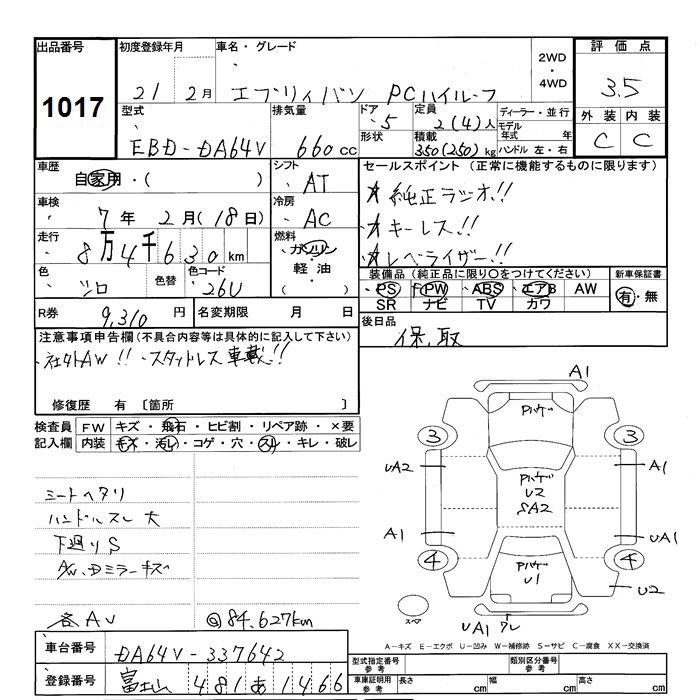 出品番号 初度登録年月 車名・グレード 2WD・4WD 評価点
1017 21 2月 エブリィバン PCハイルーフ 3.5
型式 排気量 ドア 定員 ディーラー・並行 外装 内装
EBD-DA64V 660cc 5 2(4)人 モデル年式 年 C C
形状 積載 350(250)kg ハンドル 左・右
車歴 自家用・( ) シフト AT セールスポイント(正常に機能するものに限ります)
★純正ラジオ!!
車検 7年 2月(18日) 冷房 AC ★キーレス!!
走行 8万4千630km 燃料 ガソリン 軽油 ( ) ★レベライザー!!
色 シロ 色替 色コード 26U 装備品(純正品に限り○をつけてください) 新車保証書
PS PW ABS エアB AW 有・無
SR ナビ TV カワ
R券 9,310円 名変期限 月 日 後日品
保,取
注意事項申告欄(不具合内容等は具体的に記入して下さい)
・社外AW!! ・スタットレス車載!!
修復歴 有 〔箇所 〕
検査員記入欄 FW キズ・飛石・ヒビ割・リペア跡・×要
内装 キズ・汚れ・コゲ・穴・スレ・キレ・破レ
シートヘタリ
ハンドルスレ大
下廻りS
A/W、Dミラーキズ
各AU @84.627km
A1
Pハゲ
3 3
UA2 A1
Pハゲ
U2
SA2
A1 UA1
4 4
Pハゲ
U1
U2
スペア
UA1 ワレ
A－キズ E－エクボ U－凹み W－補修跡 S－サビ C－腐食 XX－交換済
車台番号 DA64V-337642 型式指定番号 参考 類別区分番号 参考
登録番号 富士山 481あ1466 車庫証明用 参考 長さ cm 幅 cm 高さ cm